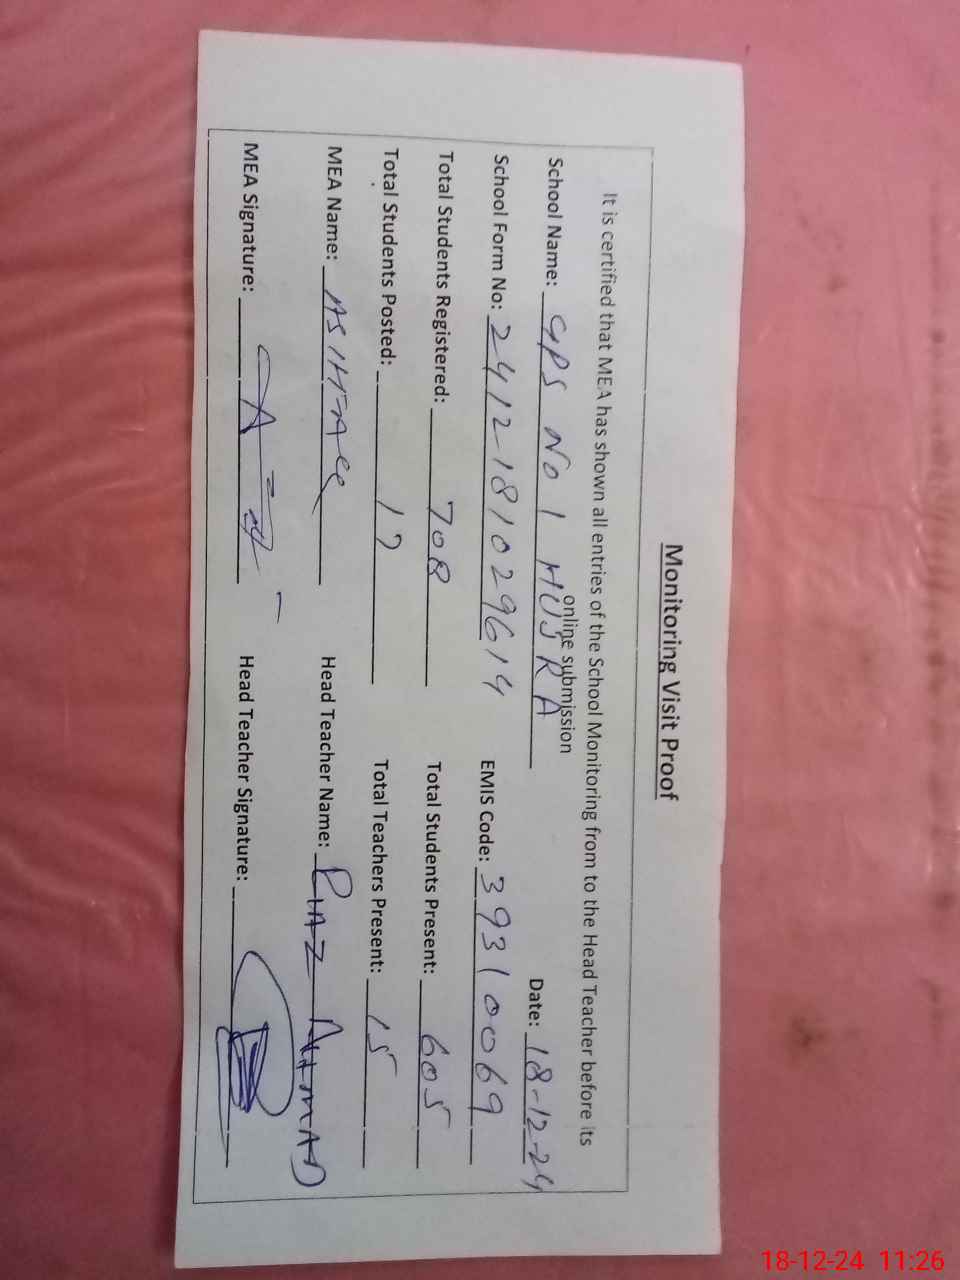 Monitoring Visit Proof
It is certified that MEA has shown all entries of the School Monitoring from to the Head Teacher before its
online submission
School Name: GPS No 1 HUJRA Date: 18-12-24
School Form No: 2412-181029614 EMIS Code: 39310069
Total Students Registered: 708 Total Students Present: 605
Total Students Posted: 17 Total Teachers Present: 15
MEA Name: Head Teacher Name: RIAZ AHMAD
MEA Signature: Head Teacher Signature:
18-12-24 11:26